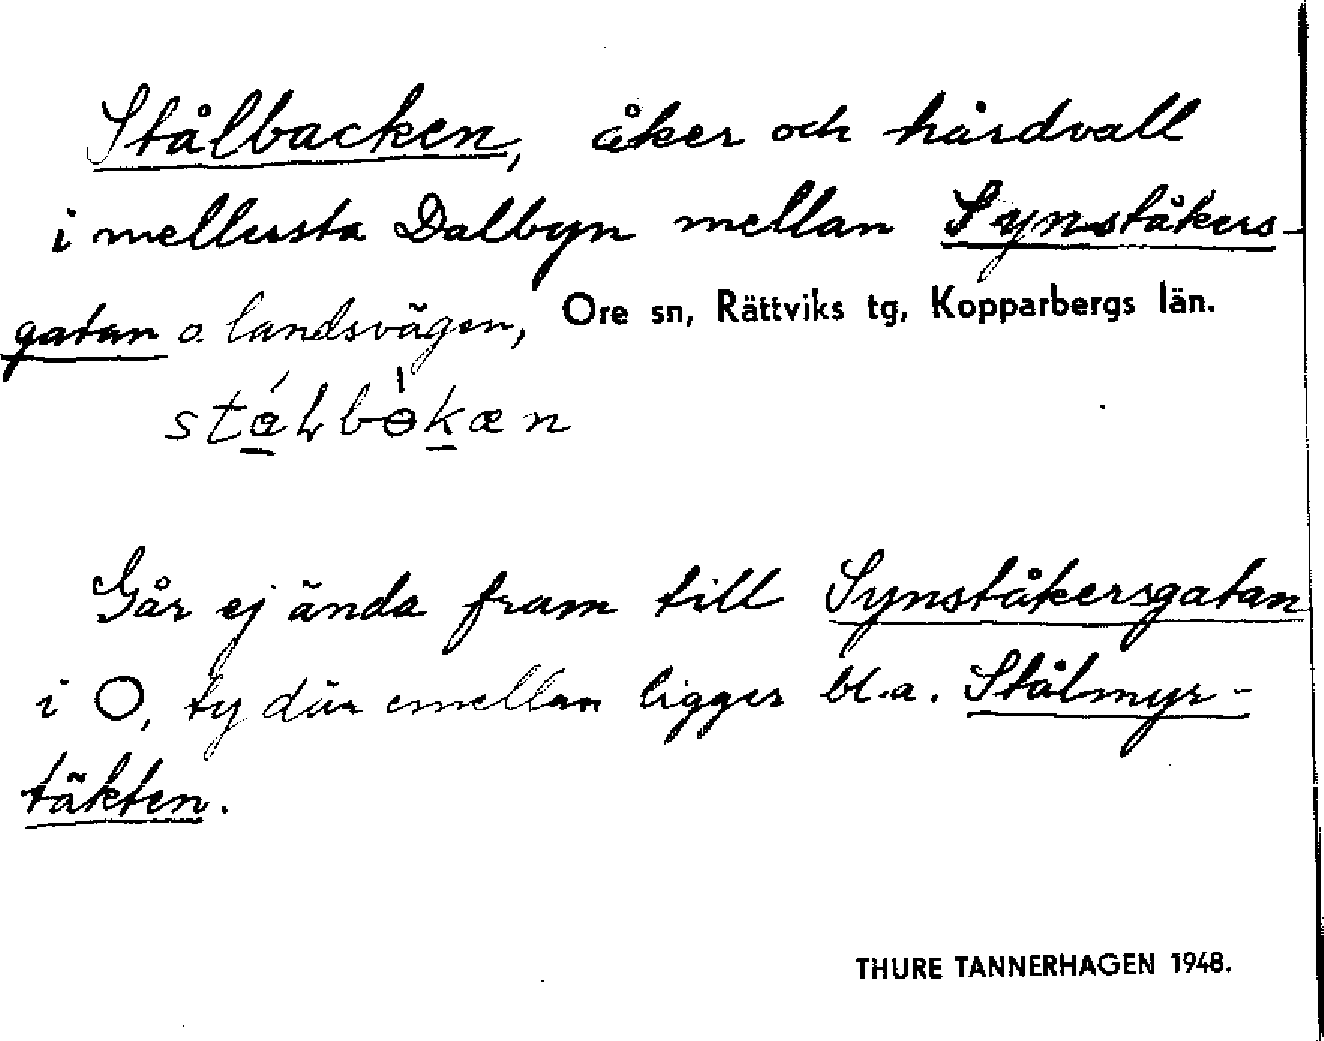 Stålbacken, åker och hårdvall
i mellersta Dalbyn mellan Synståkers-
gatan o. landsvägen, Ore sn, Rättviks tg, Kopparbergs län.
Går ej ända fram till Synståkersgatan
i O, ty där emellan ligger bl.a. Stålmyr-
täkten.
THURE TANNERHAGEN 1948.